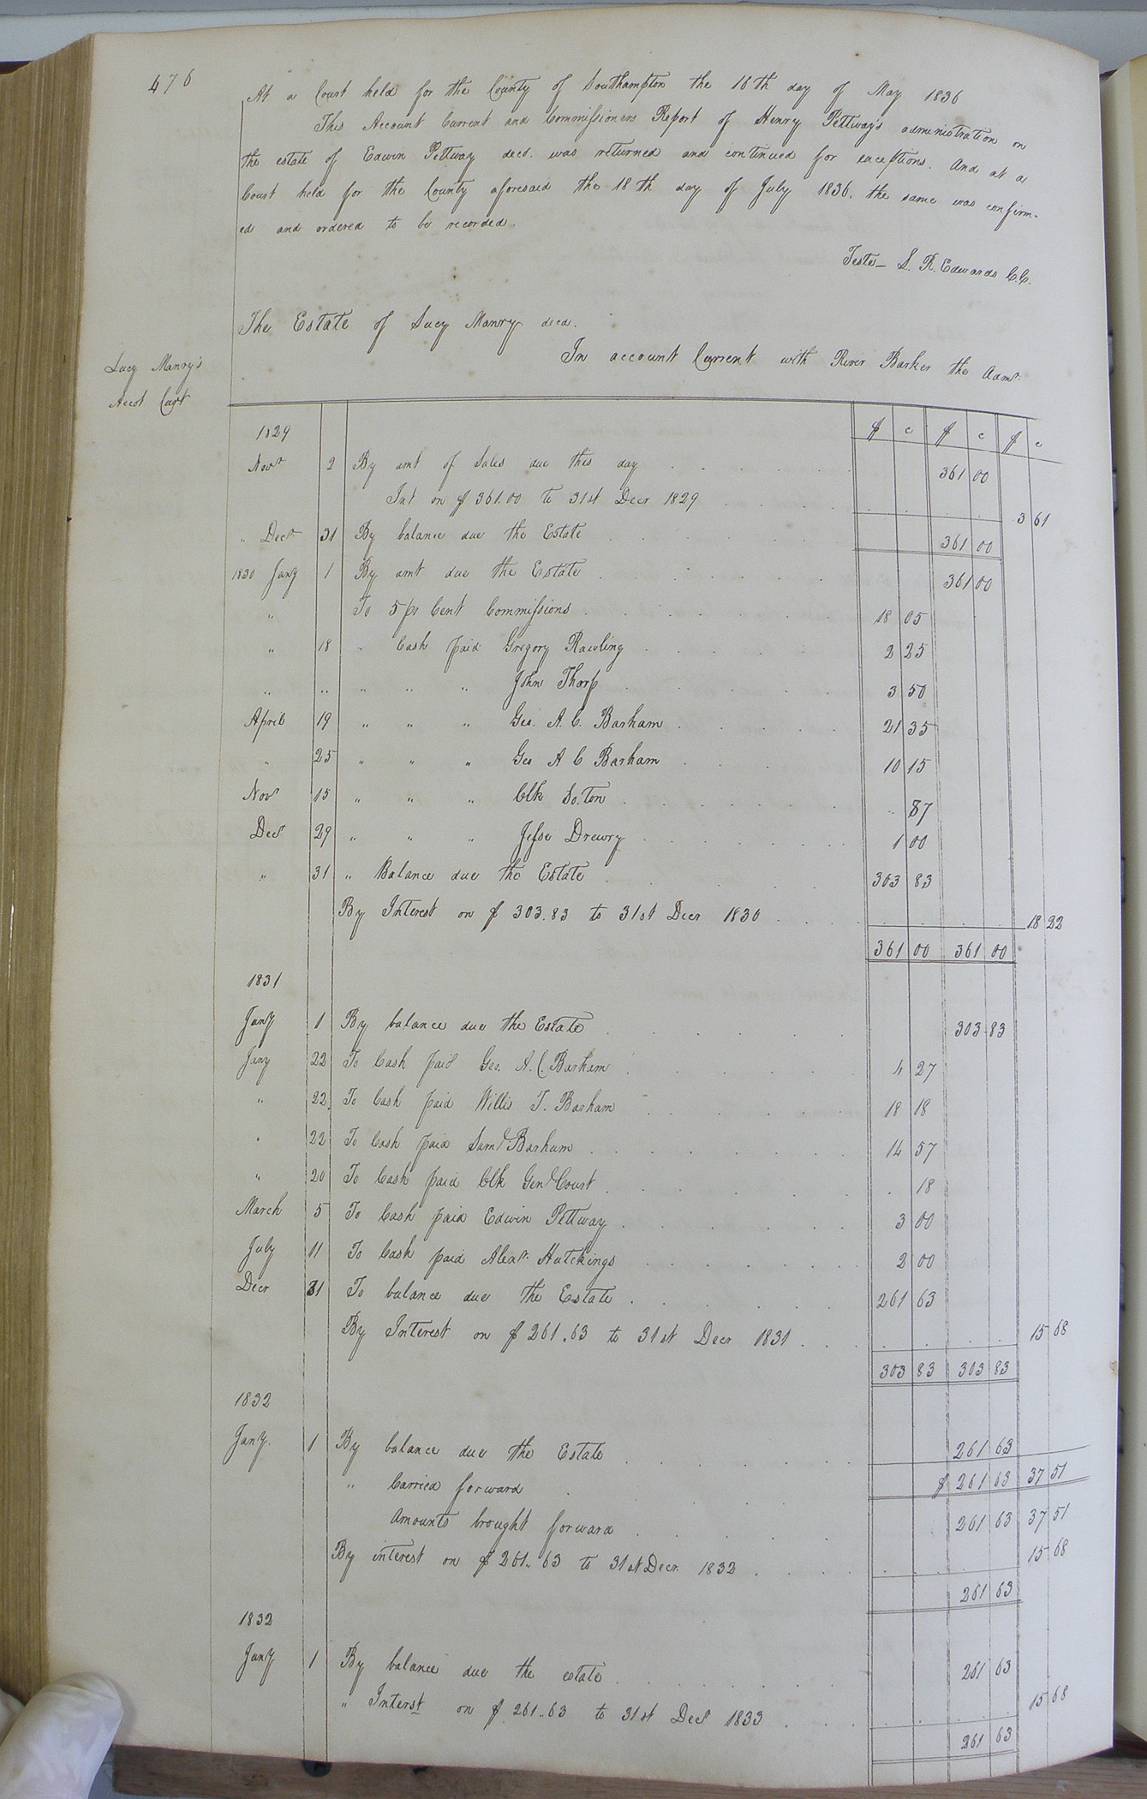 476
At a Court held for the County of Southampton the 16th day of May 1836
This Account Current and Commissioners Report of Henry Pettway's administration on
the estate of Edwin Pettway decd. was returned and continued for exceptions. And at a
Court held for the County aforesaid the 18th day of July 1836. the same was confirm-
ed and ordered to be recorded.
Teste - L. R. Edwards C.C.
The Estate of Lucy Manry decd.
In account Current with River Barker the Admr.
Lucy Manry's
Acct Curt
1829 $ c $ c $ c
Novr 2 By amt of Sales due this day 361 00
Int on $361.00 to 31st Decr 1829 3 61
" Decr 31 By balance due the Estate 361 00
1830 Jany 1 By amt due the Estate 361 00
" To 5 pr Cent Commissions 18 05
" 18 " Cash paid Gregory Rawling 2 25
" " " " " John Thorp 3 50
April 19 " " " Geo. A. C. Barham 21 35
" 25 " " " Geo A C Barham 10 15
Novr 15 " " " Clk So.ton 87
Decr 29 " " " Jesse Drewry 1 00
" 31 " Balance due the Estate 303 83
By Interest on $303.83 to 31st Decr 1830 18 22
361 00 361 00
1831
Jany 1 By balance due the Estate 303 83
Jany 22 To Cash paid Geo. A. C. Barham 4 27
" 22 To Cash paid Willis T. Barham 18 18
" 22 To Cash paid Saml Barham 14 57
" 20 To Cash paid Clk Genl Court 18
March 5 To Cash paid Edwin Pettway 3 00
July 11 To Cash paid Alexr. Hutchings 2 00
Decr 31 To balance due the Estate 261 63
By Interest on $261.63 to 31st Decr 1831 15 68
303 83 303 83
1832
Jany. 1 By balance due the Estate 261 63
" Carried forward $ 261 63 37 51
Amounts brought forward 261 63 37 51
By interest on $261..63 to 31st Decr. 1832 15 68
261 63
1832
Jany 1 By balance due the estate 261 63
" Interst on $.261..63 to 31st Decr 1833 15 68
261 63